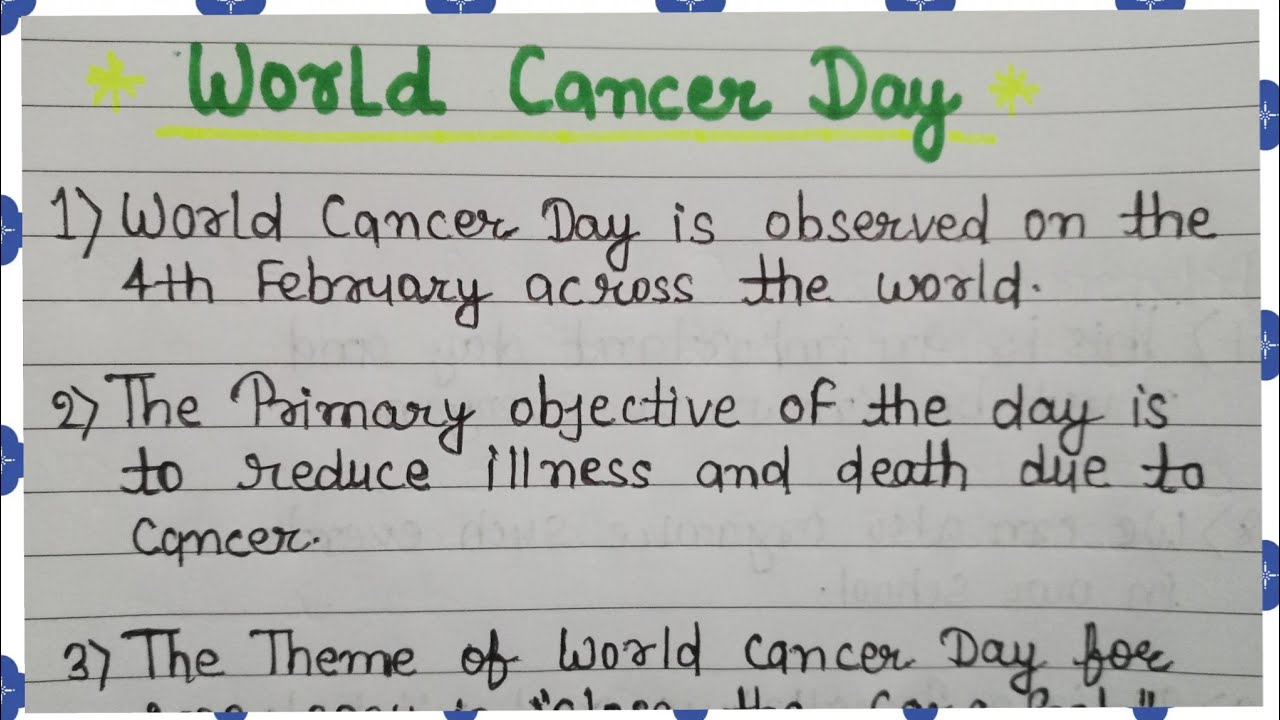 * World Cancer Day *
1) World Cancer Day is observed on the
4th February across the world.
2) The Primary objective of the day is
to reduce illness and death due to
cancer.
3) The Theme of World Cancer Day for
"close the Care